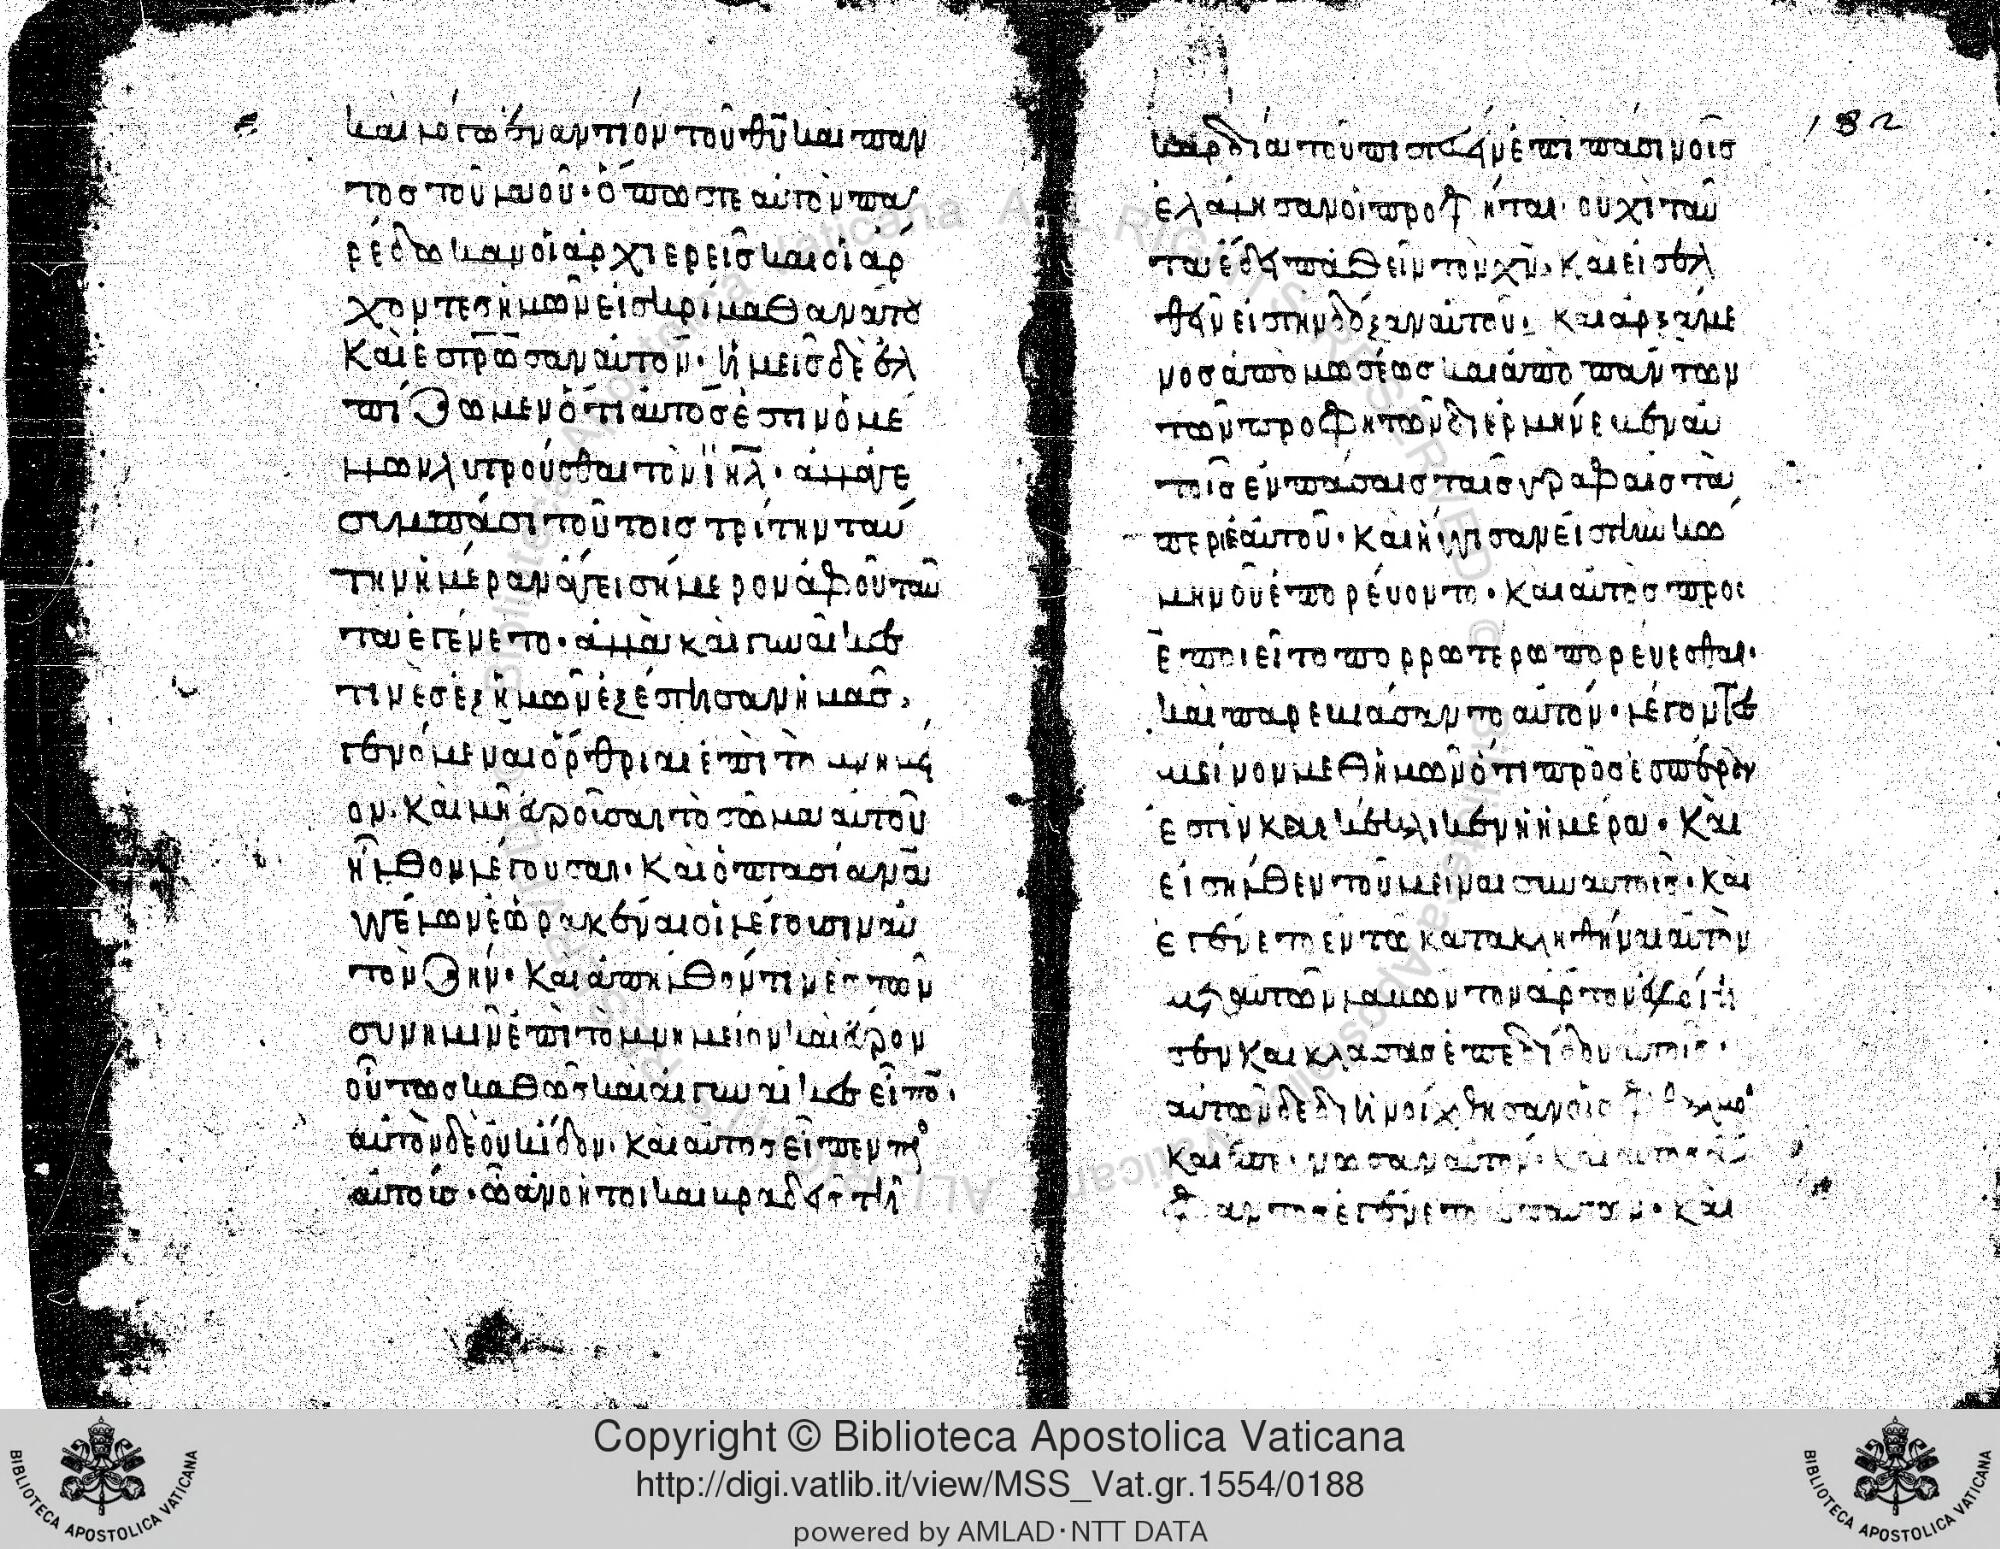 καὶ λόγω ἐναντίον τοῦ θυ καὶ παν
τὸς τοῦ λαοῦ· ὅπως τε αὐτὸν πα
ρέδωκαν οἱ ἀρχιερεῖς καὶ οἱ ἄρ
χοντες ἡμῶν εἰς κρίμα θανάτου
καὶ ἐστρωσαν αὐτον· ἡμεῖς δὲ ἐλ
πίζωμεν ὅτι αὐτός ἐστιν ὁ μέ
λλων λυτροῦσθαι τὸν ἰηλ· ἀλλάγε
συμπᾶσι τούτοις τρίτην ταύ
την ἡμέραν ἄγει σήμερον ἀφ οὗ ταῦ
τα ἐγένετο· ἀλλὰ καὶ γυναῖκες
τινὲς ἐξ ἡμῶν ἐξέστησαν ἡμᾶς,
γενόμεναι ὄρθριαι ἐπὶ τὸ μνημεῖ
ον· καὶ μὴ εὑροῦσαι τὸ σῶμα αὐτοῦ
ἦλθον λέγουσαι· καὶ ὀπτασίαν ἀ
γγέλων ἑωρακέναι οἳ λέγουσιν αὐ
τὸν ζῆν· καὶ ἀπῆλθόν τινὲς τῶν
σὺν ἡμῖν ἐπὶ τὸ μνημεῖον καὶ εὗρον
οὕτως καθὼς καὶ αἱ γυναῖκες εἶπο·
αὐτὸν δὲ οὐκ ἴδον· καὶ αὐτὸς εἶπεν πρὸς
αὐτοίς· ὦ ἀνόητοι καὶ βραδεῖς τῆ
182
καρδία τοῦ πιστεύειν ἐπὶ πᾶσιν οἷς
ἐλάλησαν οἱ προφῆται· οὐχὶ ταῦ
τα ἔδει παθεῖν τὸν χν· καὶ εἰσελ
θεῖν εἰς τὴν δόξαν αὐτοῦ· καὶ ἀρξάμε
νος ἀπὸ μωσέως καὶ ἀπὸ πάντων
τῶν προφητῶν διερμήνευεν αὐ
τοῖς ἐν πάσαις ταῖς γραφαῖς τὰ
περὶ ἑαυτοῦ· καὶ ἤγγισαν εἰς τὴν κώ
μην οὗ ἐπορεύοντο· καὶ αὐτὸς προσ
εποιεῖτο πορρωτέρω πορεύεσθαι·
καὶ παρεβιάσαντο αὐτόν· λέγοντες
μεῖνον μεθ ἡμῶν ὅτι πρὸς ἑσπέραν
ἐστὶν καὶ κέκλικεν ἡ ἡμέρα· καὶ
εἰσῆλθεν τοῦ μεῖναι σὺν αὐτοῖς· καὶ
ἐγένετο ἐν τῶ κατακληθῆναι αὐτὸν
μετ αὐτῶν λαβὼν τὸν ἄρτον εὐλόγη
σεν καὶ κλάσας ἐπεδίδου αὐτοῖς·
αὐτῶν δὲ διηνοίχθησαν οἱ ὀφθαλμοὶ
καὶ ἐπέγνωσαν αὐτόν· καὶ αὐτὸς ἄ
φαντος ἐγένετο ἀπ αὐτῶν· καὶ
Copyright © Biblioteca Apostolica Vaticana
http://digi.vatlib.it/view/MSS_Vat.gr.1554/0188
powered by AMLAD·NTT DATA
BIBLIOTECA APOSTOLICA VATICANA
BIBLIOTECA APOSTOLICA VATICANA